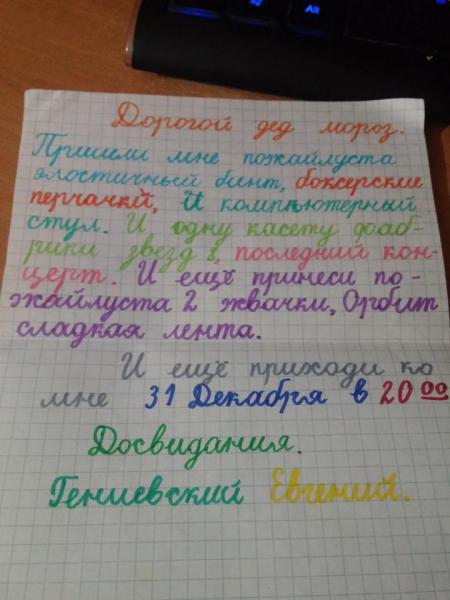 Дорогой дед мороз.
Пришли мне пожайлуста
элостичный бинт, боксерские
перчаткй, И компьютерный
стул. И, одну касету фаб-
рики звезд 8, последний кон-
церт. И ещё принеси по-
жайлуста 2 жвачки, Орбит
сладкая лента.
И ещё приходи ко
мне 31 Декабря в 20 00
Досвидания.
Гениевский Евгений.